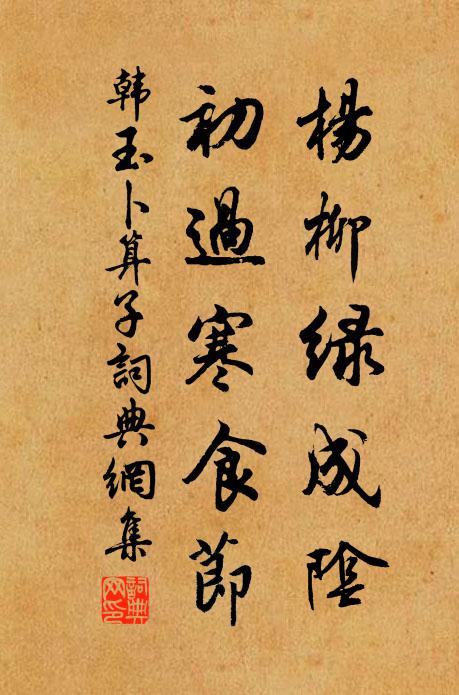 楊柳绿成陰
初過寒食節
韩玉卜算子詞典網集
詞典网印